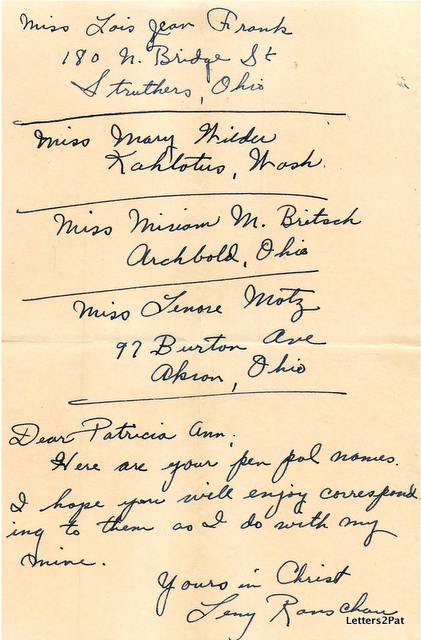 Miss Lois Jean Frank
180 N. Bridge St
Struthers, Ohio
Miss Mary Wilder
Kahlotus, Wash.
Miss Miriam M. Britsch
Archbold, Ohio
Miss Lenore Motz
97 Burton Ave
Akron, Ohio
Dear Patricia Ann,
Here are your pen pal names.
I hope you will enjoy correspond
ing to them as I do with my
mine.
Yours in Christ
Letters2Pat